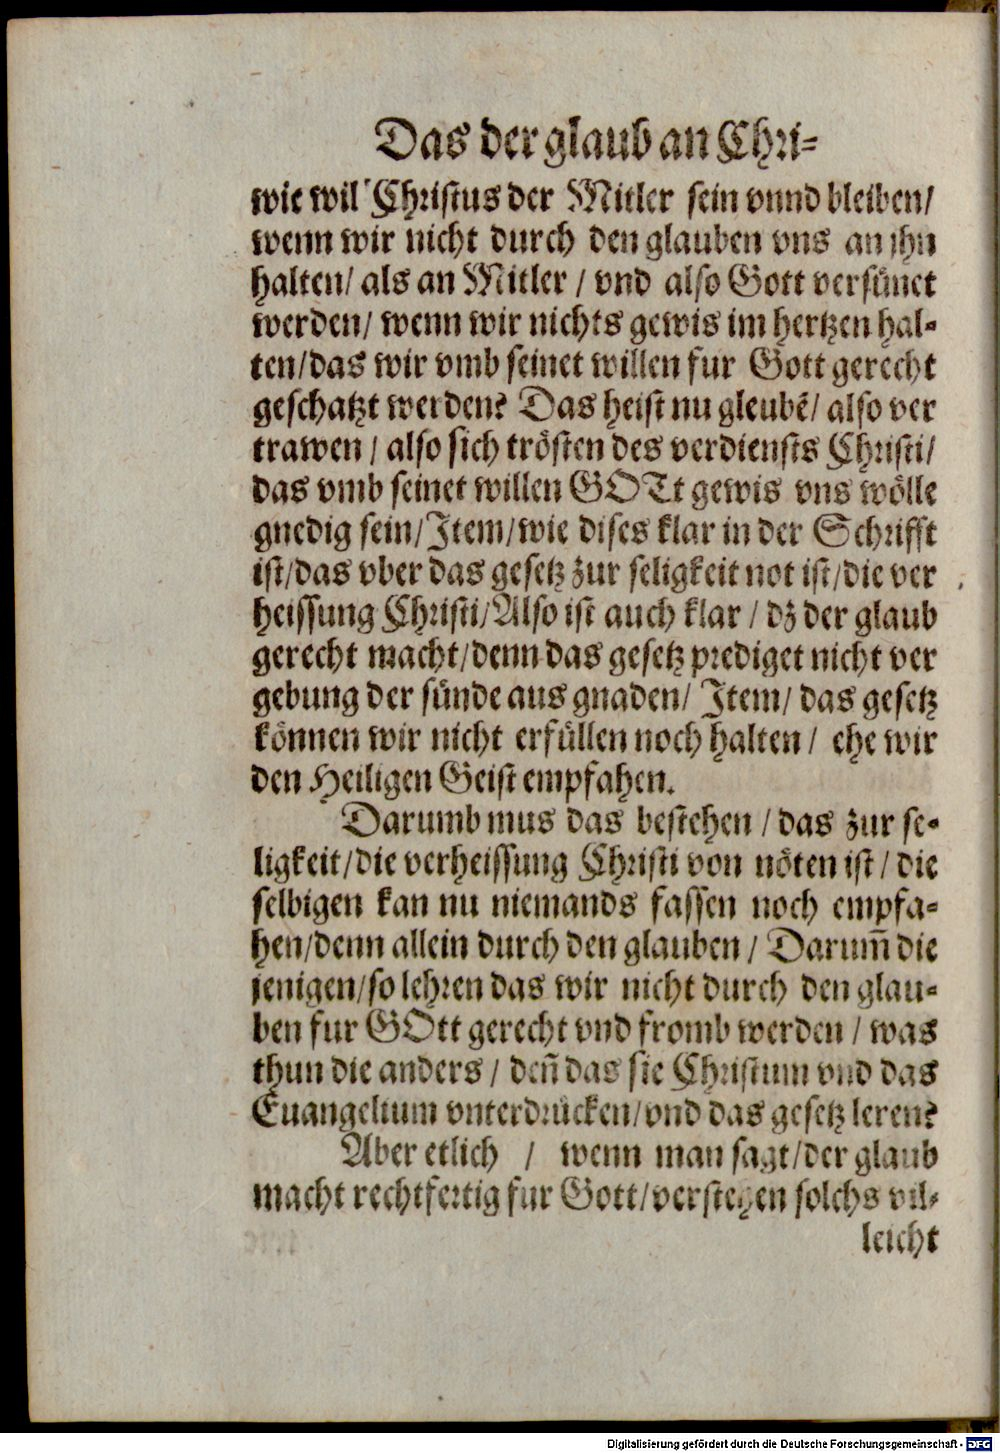 Das der glaub an Chri-
wie wil Christus der Mitler sein vnnd bleiben/
wenn wir nicht durch den glauben vns an jhn
halten/ als an Mitler / vnd also Gott versünet
werden/ wenn wir nichts gewis im hertzen hal-
ten/das wir vmb seinet willen fur Gott gerecht
geschatzt werden? Das heist nu gleubē/ also ver
trawen / also sich trösten des verdiensts Christi/
das vmb seinet willen GOTt gewis vns wölle
gnedig sein/Item/wie dises klar in der Schrifft
ist/das vber das gesetz zur seligkeit not ist/die ver
heissung Christi/Also ist auch klar / dz der glaub
gerecht macht/denn das gesetz prediget nicht ver
gebung der sünde aus gnaden/ Item/ das gesetz
können wir nicht erfüllen noch halten / ehe wir
den Heiligen Geist empfahen.
Darumb mus das bestehen / das zur se-
ligkeit/die verheissung Christi von nöten ist / die
selbigen kan nu niemands fassen noch empfa-
hen/denn allein durch den glauben / Darum̃ die
jenigen/so lehren das wir nicht durch den glau-
ben fur GOtt gerecht vnd fromb werden / was
thun die anders / den̄ das sie Christum vnd das
Euangelium vnterdrücken/vnd das gesetz leren?
Aber etlich / wenn man sagt/der glaub
macht rechtfertig fur Gott/verstehen solchs vil-
leicht
Digitalisierung gefördert durch die Deutsche Forschungsgemeinschaft - DFG